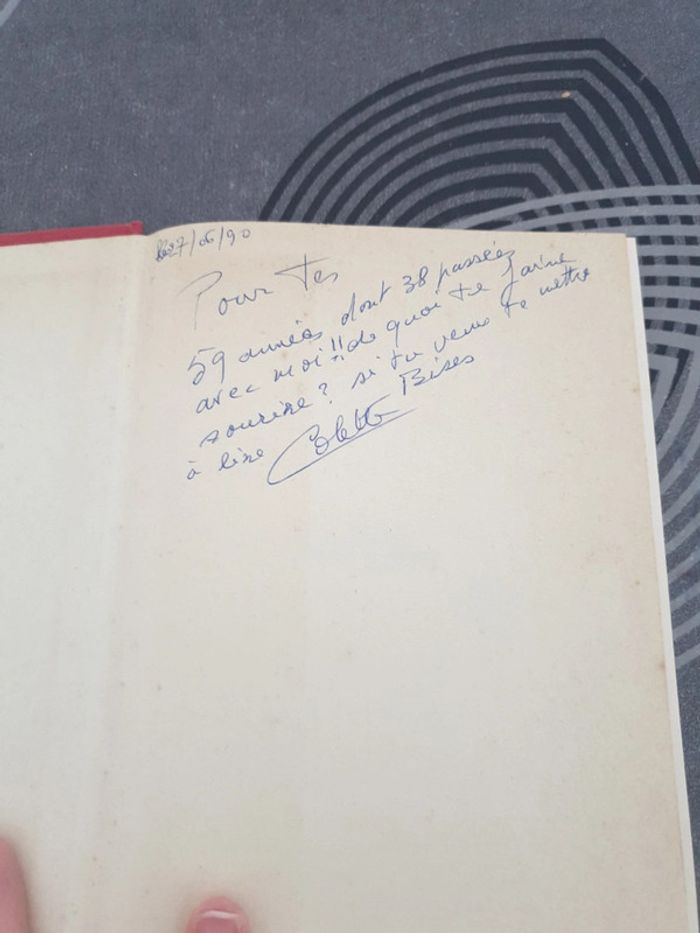 le 27/06/90
Pour tes
59 années dont 38 passées
avec moi!! de quoi te faire
sourire? si tu veux te mettre
à lire Bises
Colette